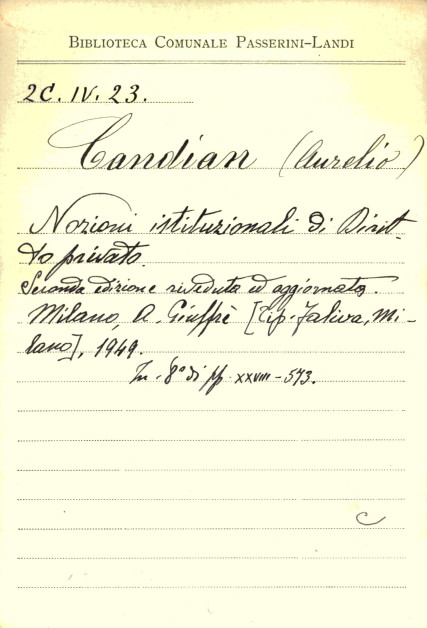 BIBLIOTECA COMUNALE PASSERINI-LANDI
2C. IV. 23.
Candian (Aurelio)
Nozioni istituzionali di Dirit-
to privato.
Seconda edizione riveduta ed aggiornata.
Milano, A. Giuffrè [Tip. Saliva, Mi-
lano], 1949.
In-8° di pp. XXVIII-573.
C